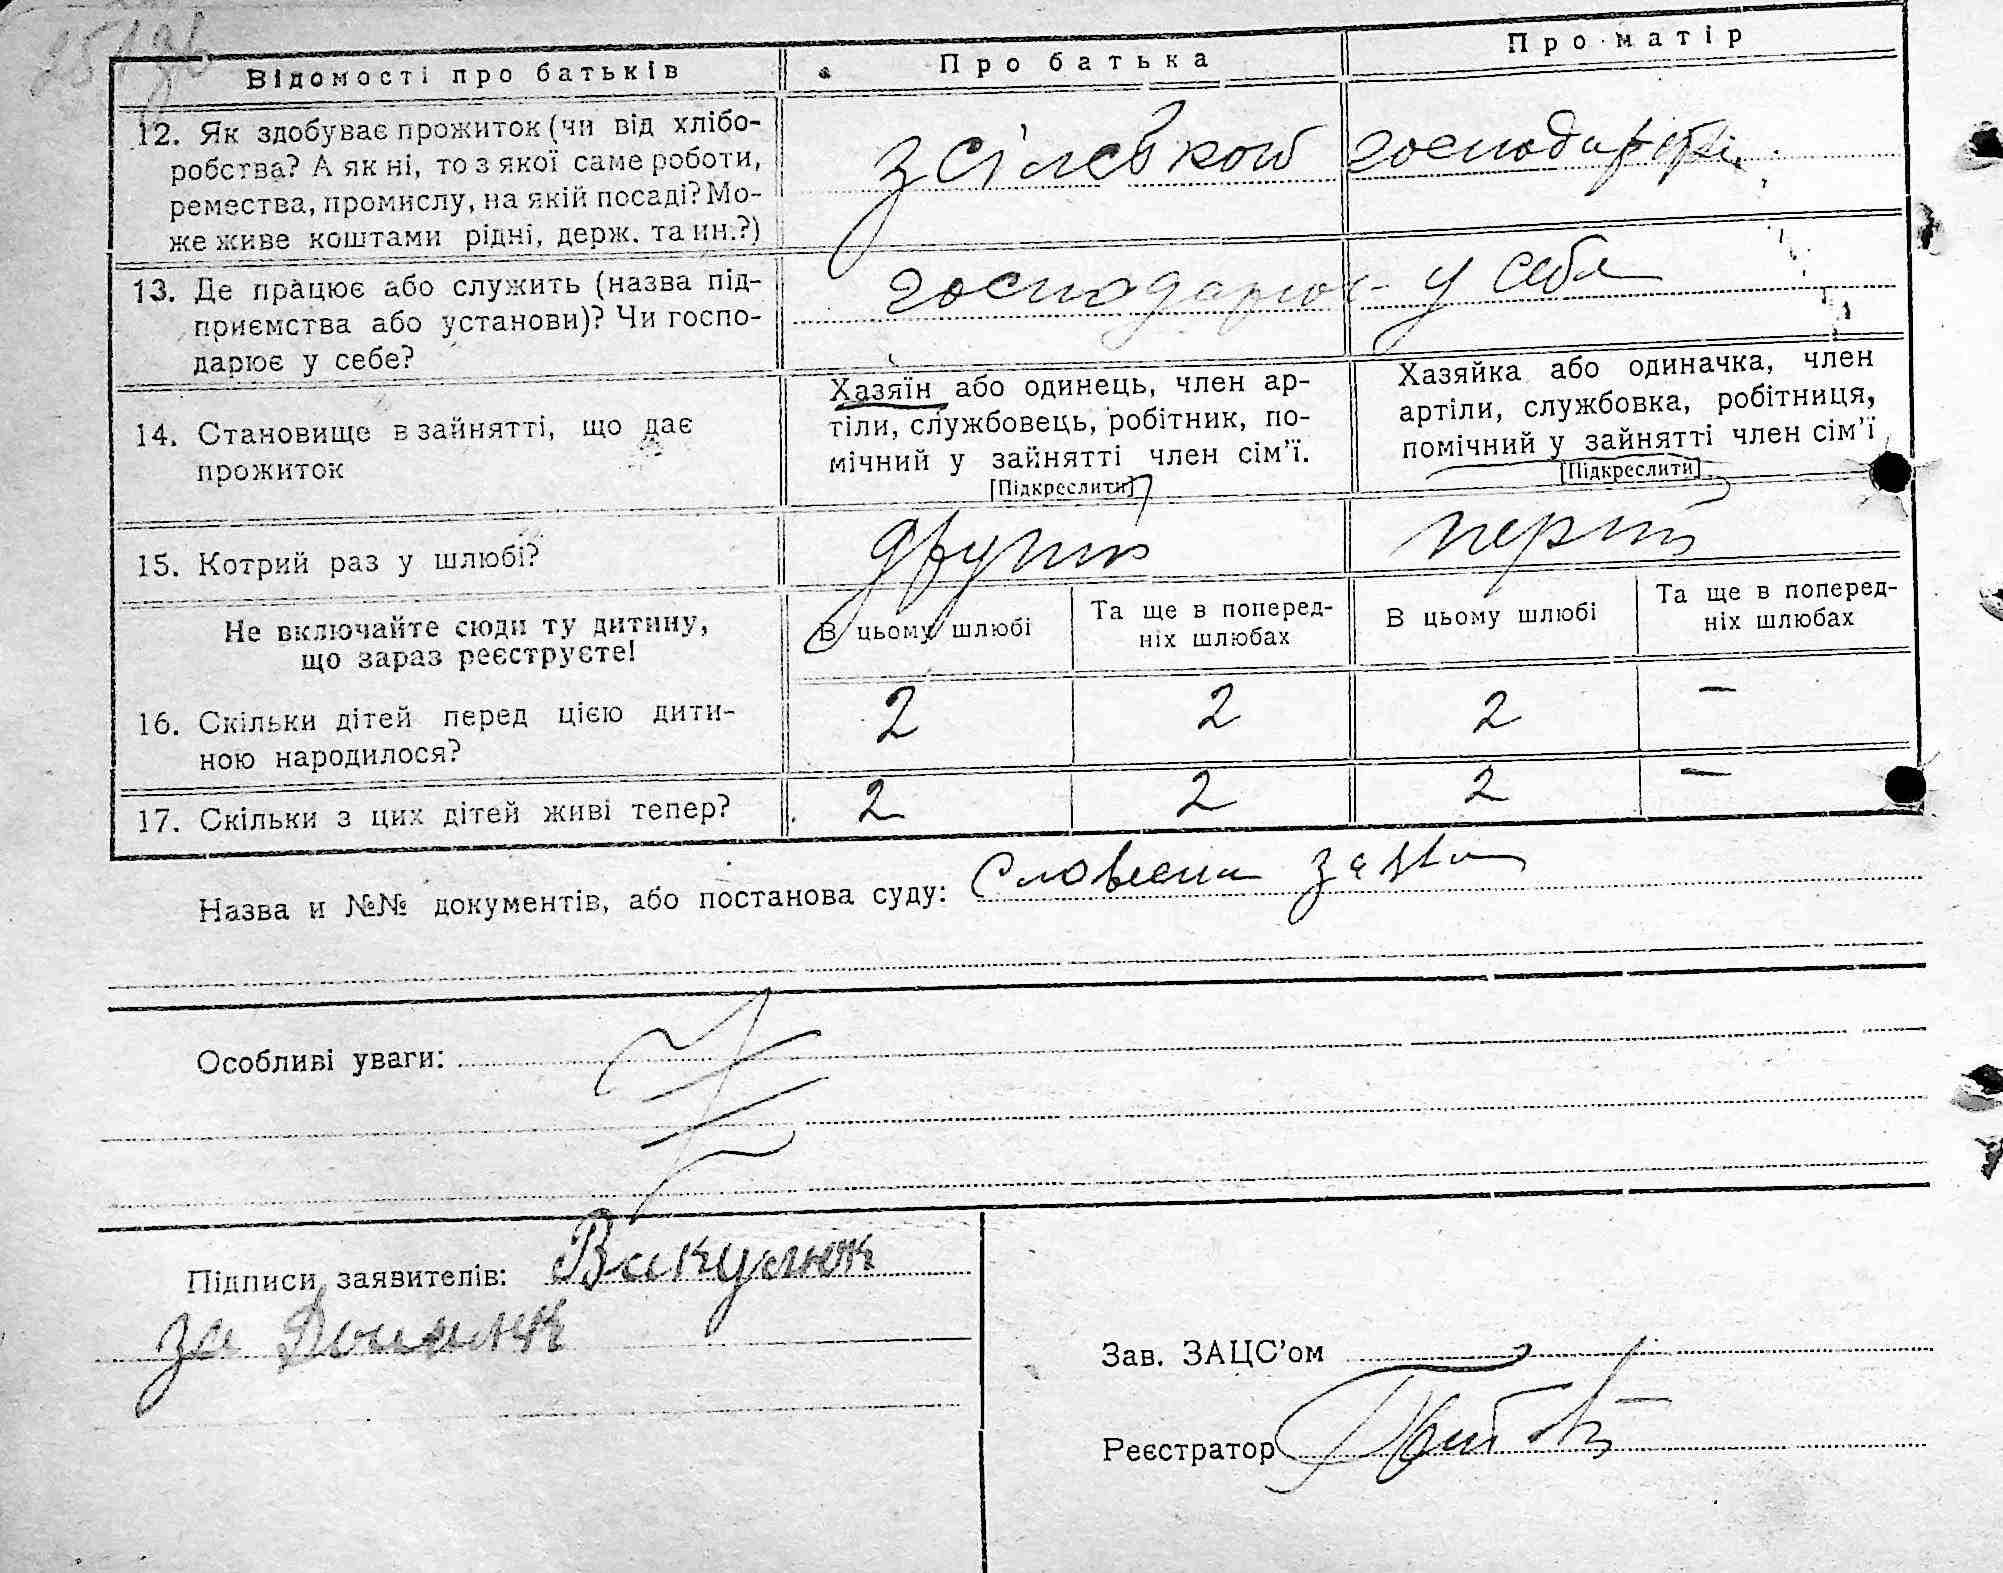 Відомості про батьків Про батька Про матір
12. Як здобуває прожиток (чи від хлібо-
робства? А як ні, то з якої саме роботи,
ремества, промислу, на якій посаді? Мо-
же живе коштами рідні, держ. та ин.?)
з сільськой господарки
13. Де працює або служить (назва під-
приємства або установи)? Чи госпо-
дарює у себе?
господарює у себе
14. Становище в зайнятті, що дає
прожиток
Хазяїн або одинець, член ар-
тіли, службовець, робітник, по-
мічний у зайнятті член сім'ї.
[Підкреслити]
Хазяйка або одиначка, член
артіли, службовка, робітниця,
помічний у зайнятті член сім'ї
[Підкреслити]
15. Котрий раз у шлюбі? другий перший
Не включайте сюди ту дитину,
що зараз реєструєте!
В цьому шлюбі
Та ще в поперед-
ніх шлюбах
В цьому шлюбі
Та ще в поперед-
ніх шлюбах
16. Скільки дітей перед цією дити-
ною народилося?
2 2 2 –
17. Скільки з цих дітей живі тепер? 2 2 2 –
Назва и №№ документів, або постанова суду: Словесна заява
Особливі уваги:
Підписи заявителів: Вакулюк
за
Зав. ЗАЦС'ом
Реєстратор